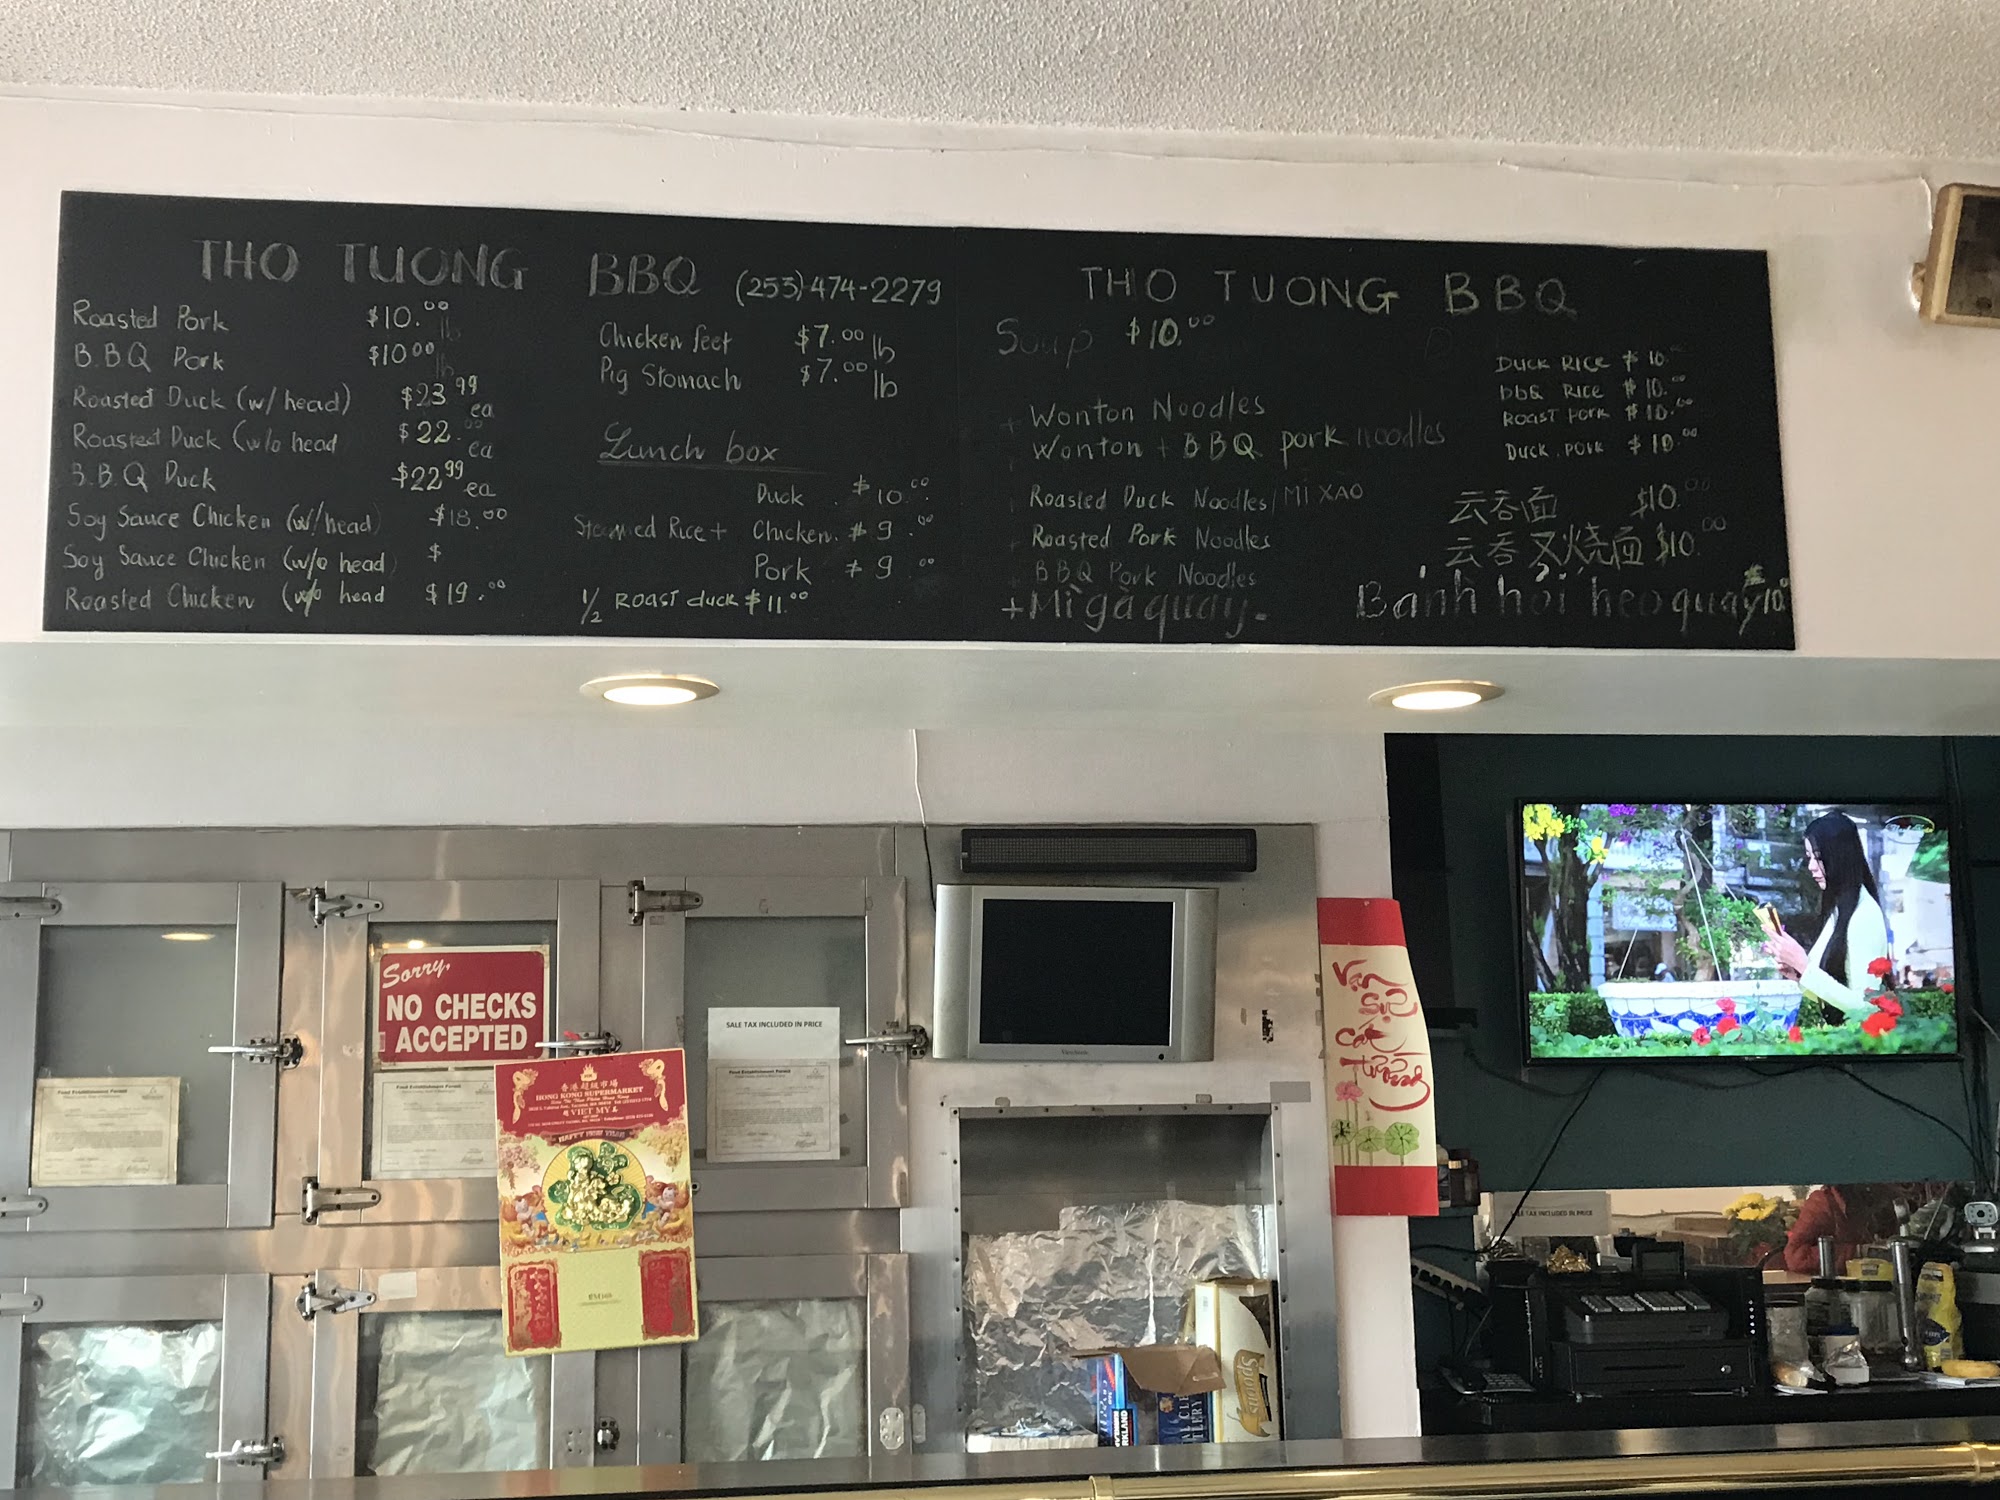 THO TUONG BBQ (253)-474-2279
Roasted Pork $10.00 lb
B.B.Q Pork $10.00 lb
Roasted Duck (w/ head) $23.99 ea
Roasted Duck (w/o head $22.00 ea
B.B.Q Duck $22.99 ea
Soy Sauce Chicken (w/ head) $18.00
Soy Sauce Chicken (w/o head) $
Roasted Chicken (w/o head $19.00
Chicken feet $7.00 lb
Pig Stomach $7.00 lb
Lunch box
Duck $10.00
Steamed Rice + Chicken $9.00
Pork $9.00
1/2 ROAST duck $11.00
THO TUONG BBQ
Soup $10.00
+ Wonton Noodles
Wonton + BBQ pork noodles
Roasted Duck Noodles/MÌ XÀO
+ Roasted Pork Noodles
+ BBQ Pork Noodles
+ Mì gà quay.
DUCK RICE $10.00
bbQ RICE $10.00
ROAST PORK $10.00
DUCK. PORK $10.00
云吞面 $10.00
云吞叉烧面 $10.00
Bánh hỏi heo quay $10.
Sorry,
NO CHECKS
ACCEPTED
SALE TAX INCLUDED IN PRICE
Food Establishment Permit
Food Establishment Permit
Food Establishment Permit
香港超級市場
HONG KONG SUPERMARKET
VIET MY
HAPPY NEW YEAR
ViewSonic
Vạn
Sự
Cát
Tường
SALE TAX INCLUDED IN PRICE
Spoons
KIRKLAND